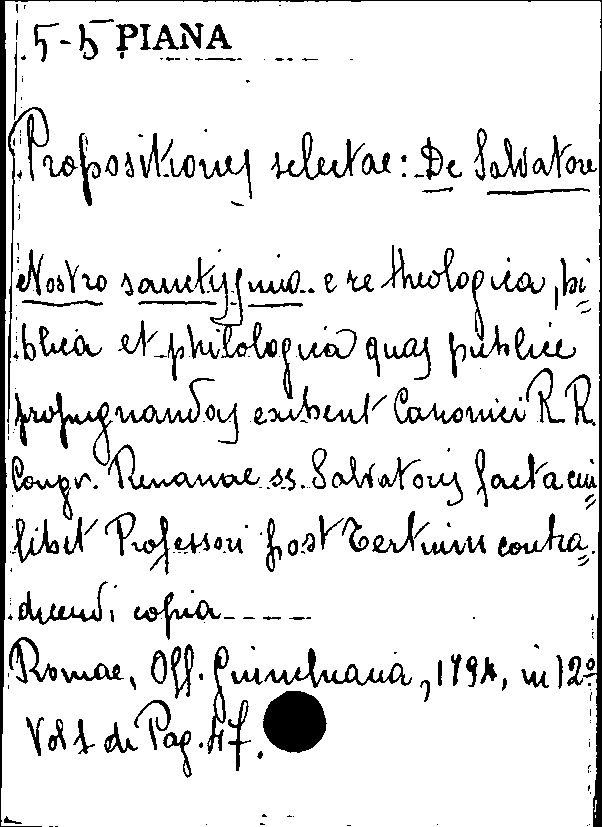 5-5 PIANA
Propositiones selectae: De Salvatore
Nostro sanctissimo e re theologica, bi
blica et philologica quas publice
propugnandas exibent Canonici R.R.
Congr. Renanae ss. Salvatoris facta cui
libet Professori post Tertium contra
dicendi copia
Romae, Off. 179
, in 12º
Vol 1 di Pag. 47.